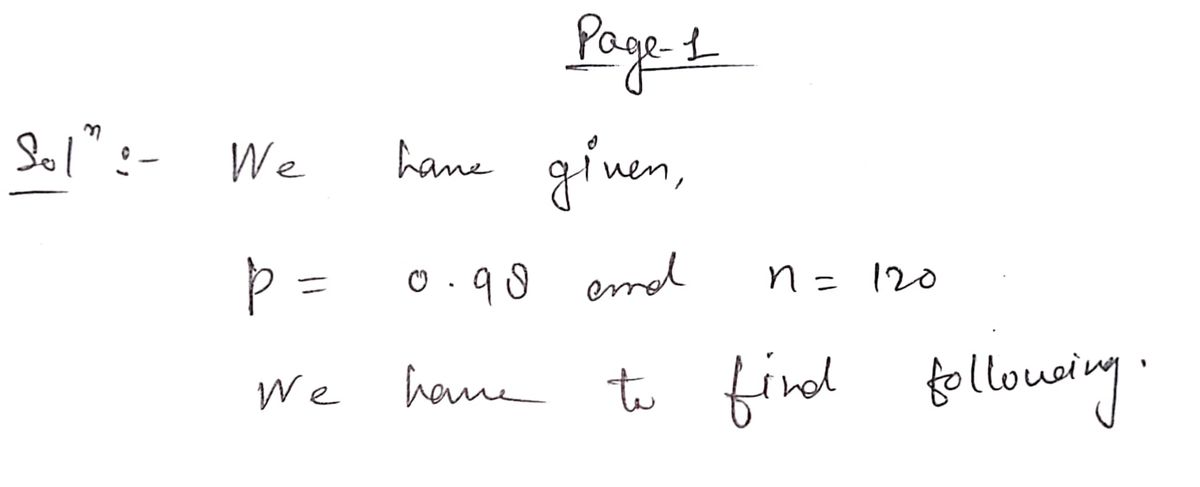 Page-1
Solⁿ :- We have given,
p = 0.98 and n = 120
We have to find following.